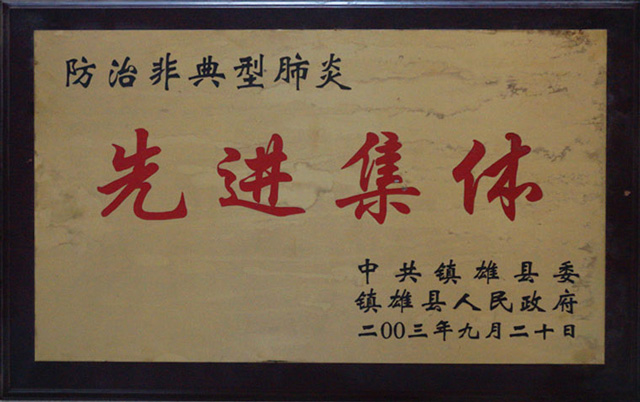 防治非典型肺炎
先进集体
中共镇雄县委
镇雄县人民政府
二00三年九月二十日